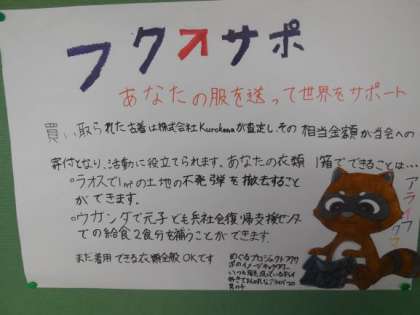 フクスサポ
あなたの服を送って世界をサポート
買い取られた古着は株式会社Kurokawaが査定し、その相当金額が当会への
寄付となり、活動に役立てられます。あなたの衣類1箱でできることは…
・ラオスで1㎡の土地の不発弾を撤去すること
ができます。
・ウガンダで元子ども兵社会復帰支援センター
での給食2食分を補うことができます。
まだ着用できる衣類全般OKです
めぐるプロジェクトフクサ
ポのイメージキャラクター
アライフク